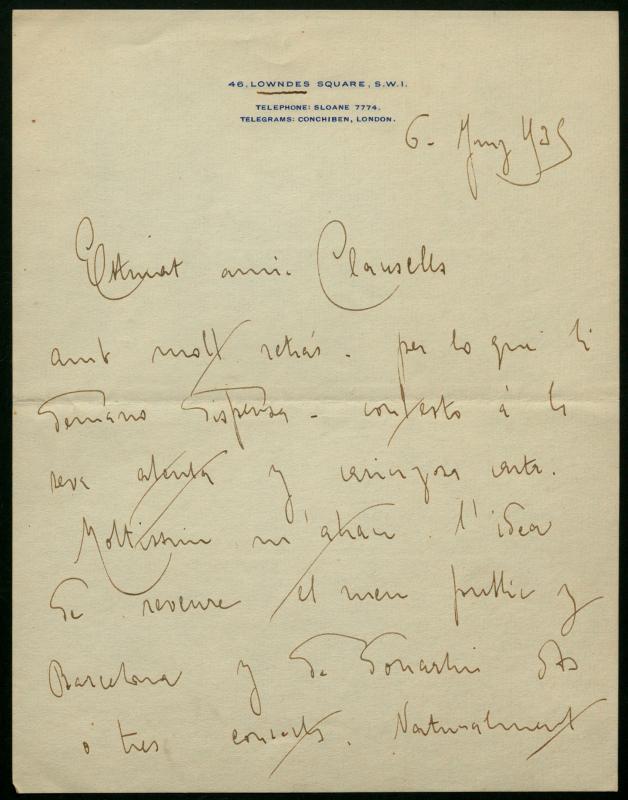 46, LOWNDES SQUARE, S.W.I.
TELEPHONE: SLOANE 7774.
TELEGRAMS: CONCHIBEN, LONDON.
6 - Juny
Estimat amic Clausells
amb molt retrás - per lo que li
demano dispensa - contesto á la
seva atenta y carinyosa carta.
Moltissim m'atrau l'idea
de reveure el meu public y
Barcelona y de donarhi dos
ó tres concerts. Naturalment